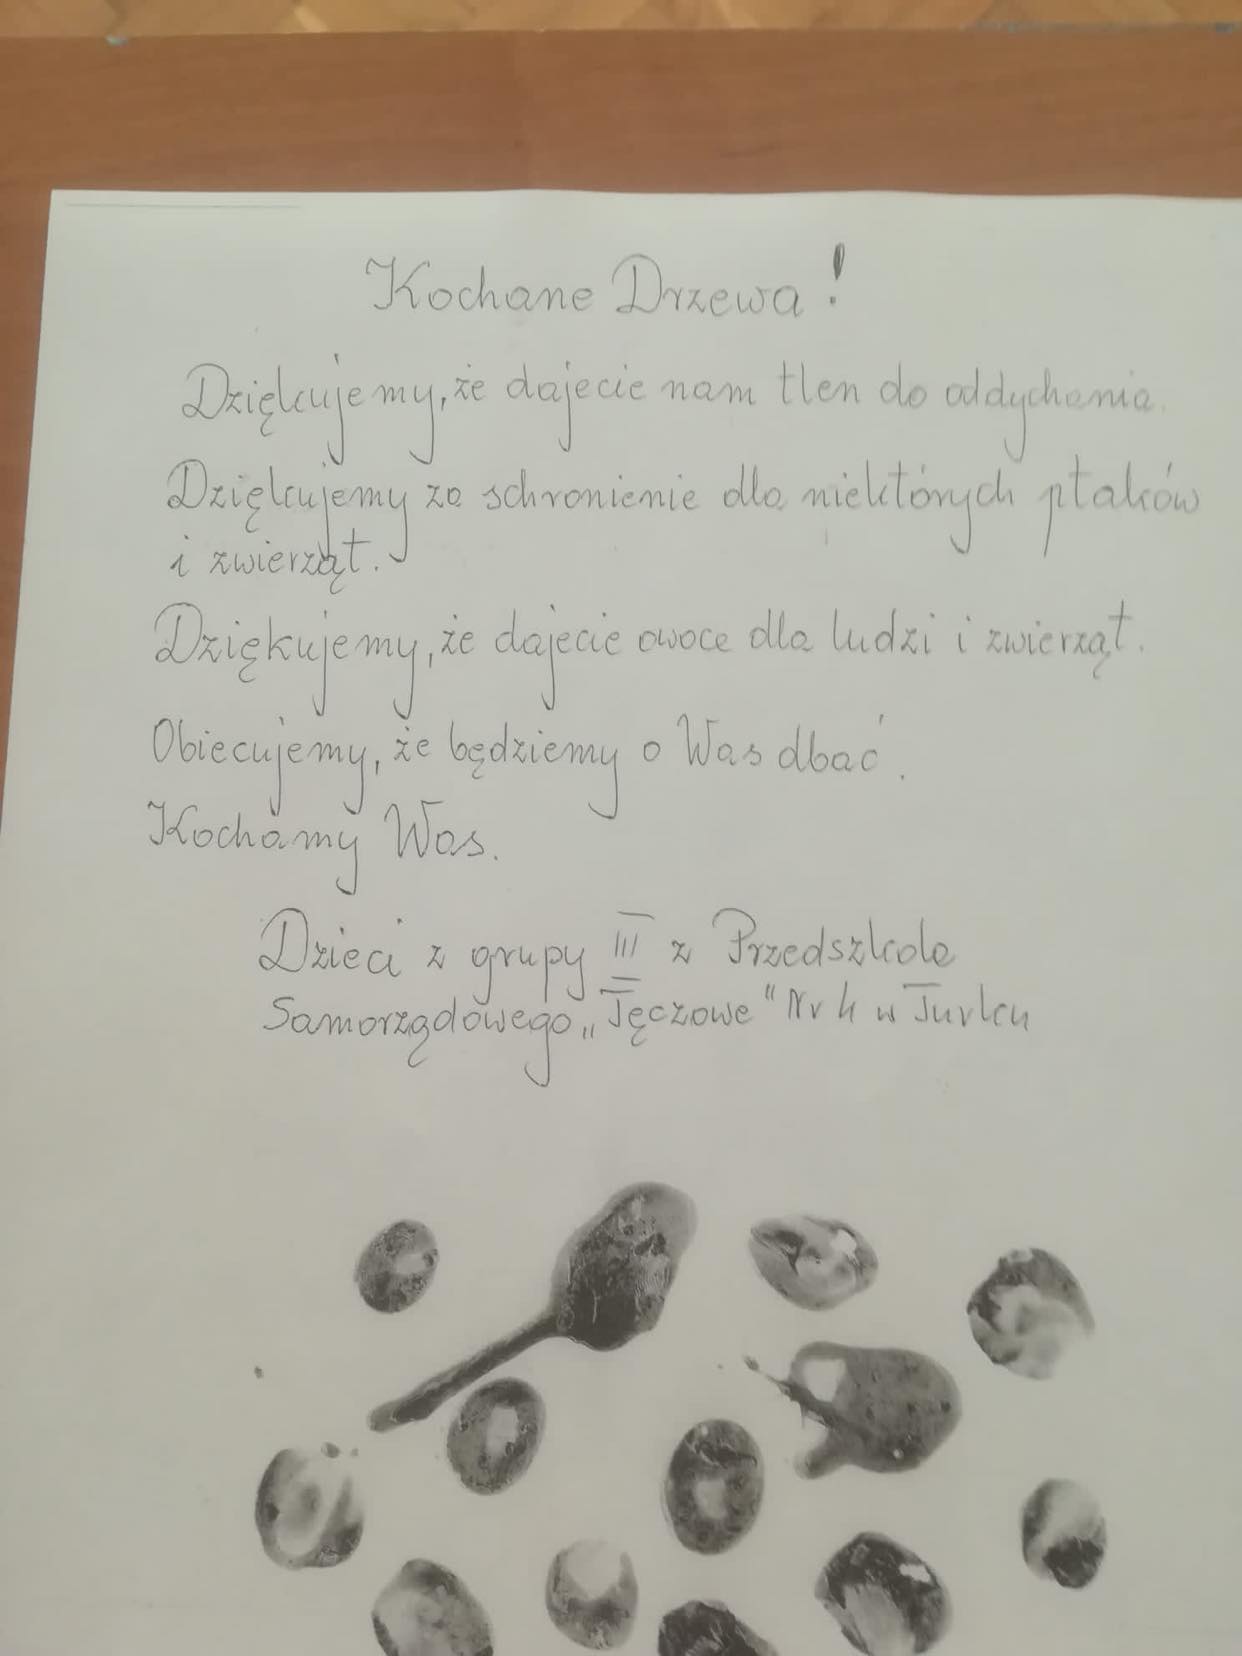 Kochane Drzewa!
Dziękujemy, że dajecie nam tlen do oddychania.
Dziękujemy za schronienie dla niektórych ptaków
i zwierząt.
Dziękujemy, że dajecie owoce dla ludzi i zwierząt.
Obiecujemy, że będziemy o Was dbać.
Kochamy Was.
Dzieci z grupy III z Przedszkola
Samorządowego „Tęczowe" Nr 4 w Turku